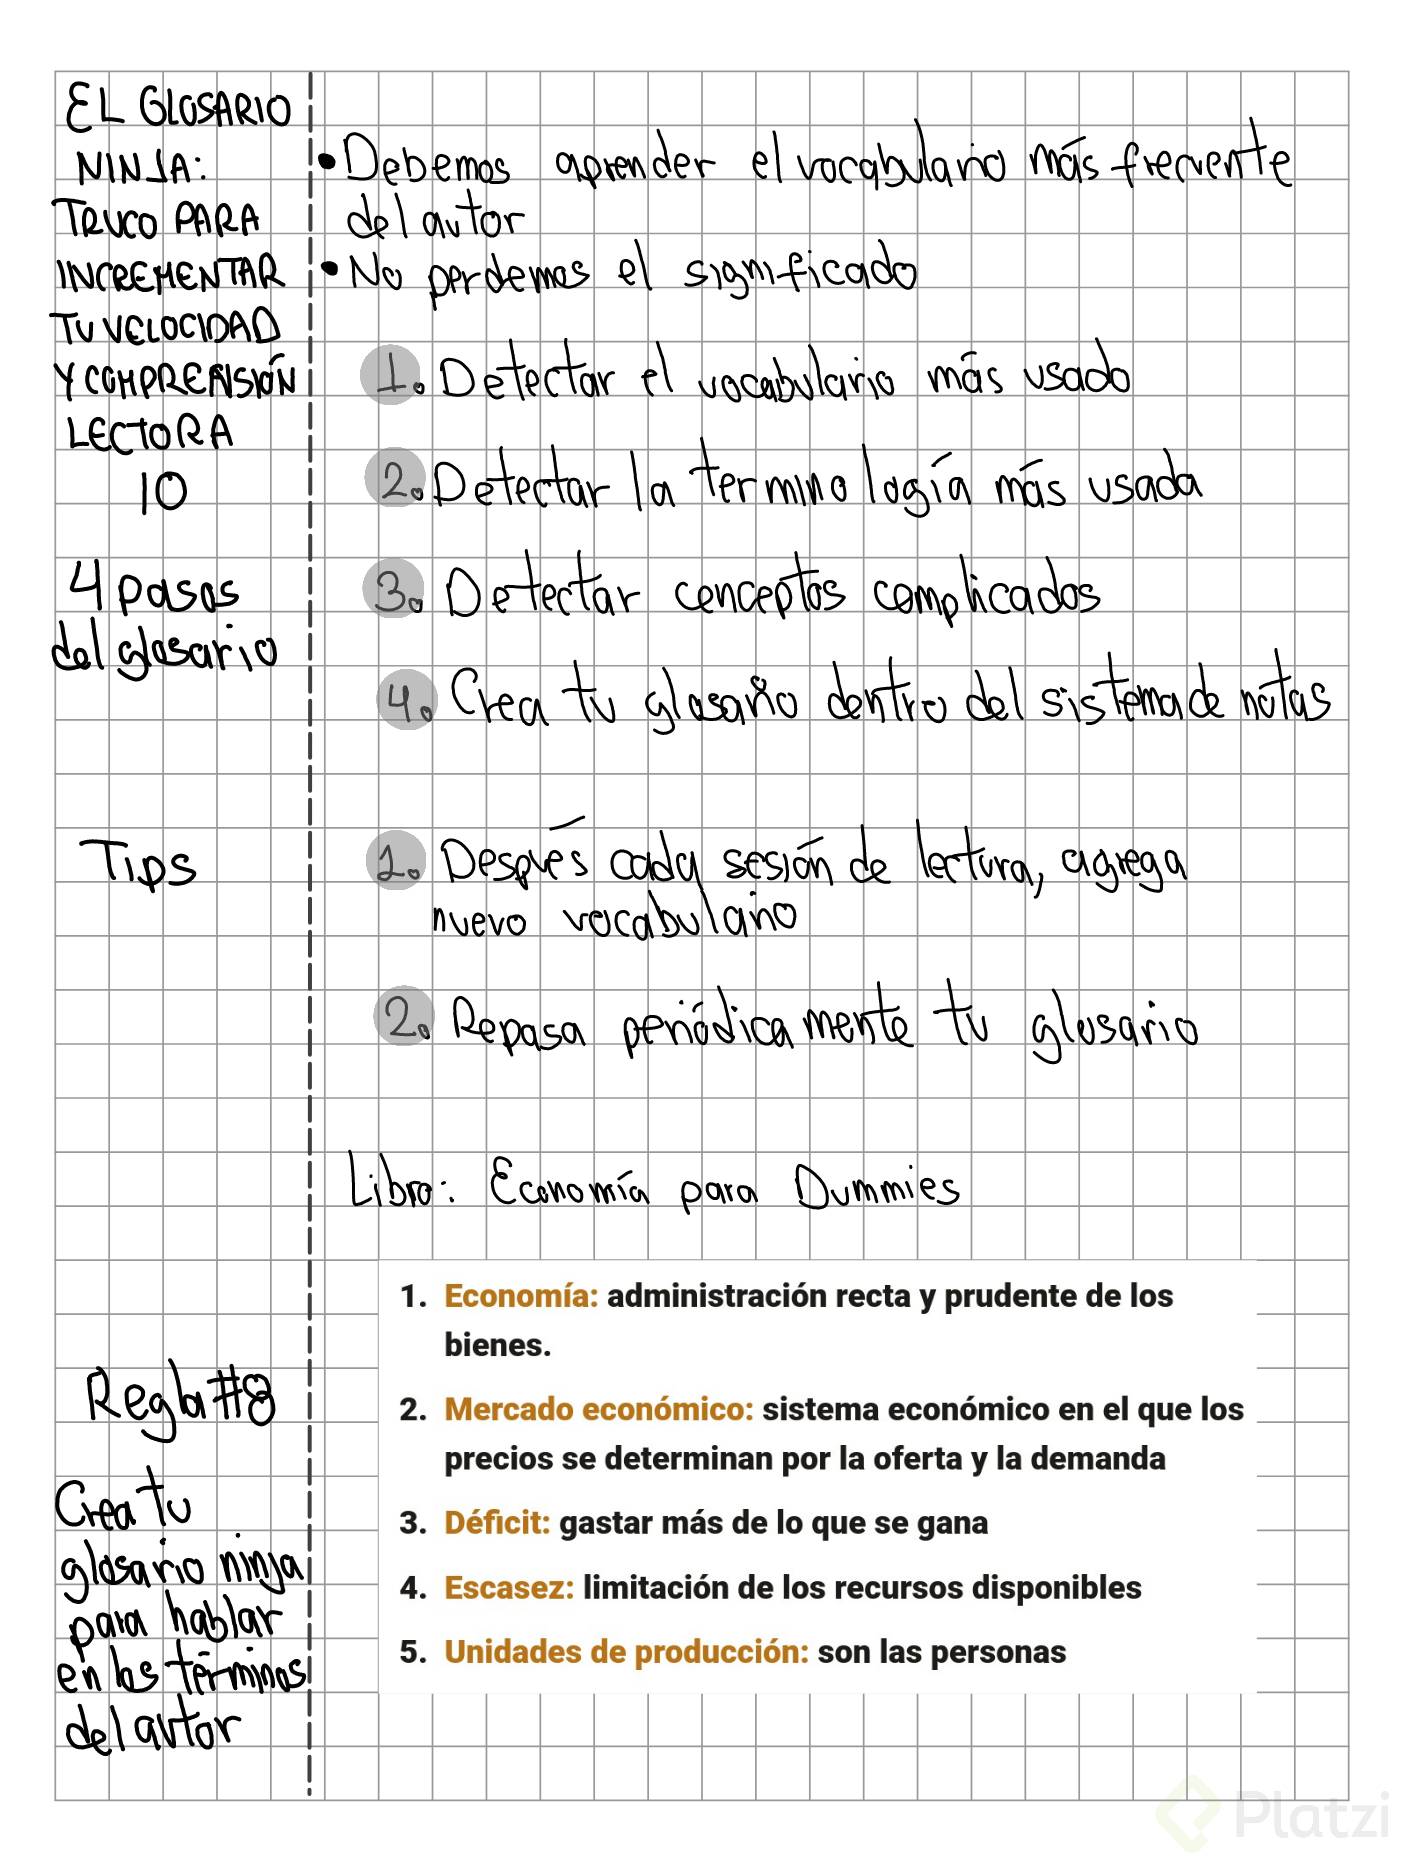 EL GLOSARIO
NINJA:
TRUCO PARA
INCREMENTAR
TU VELOCIDAD
Y COMPRENSIÓN
LECTORA
10
• Debemos aprender el vocabulario más frecuente
del autor
• No perdemos el significado
4 pasos
del glosario
1. Detectar el vocabulario más usado
2. Detectar la terminología más usada
3. Detectar conceptos complicados
4. Crea tu glosario dentro del sistema de notas
Tips
1. Después cada sesión de lectura, agrega
nuevo vocabulario
2. Repasa periódicamente tu glosario
Libro: Economía para Dummies
1. Economía: administración recta y prudente de los
bienes.
2. Mercado económico: sistema económico en el que los
precios se determinan por la oferta y la demanda
3. Déficit: gastar más de lo que se gana
4. Escasez: limitación de los recursos disponibles
5. Unidades de producción: son las personas
Regla #8
Crea tu
glosario ninja
para hablar
en los términos
del autor
Platzi